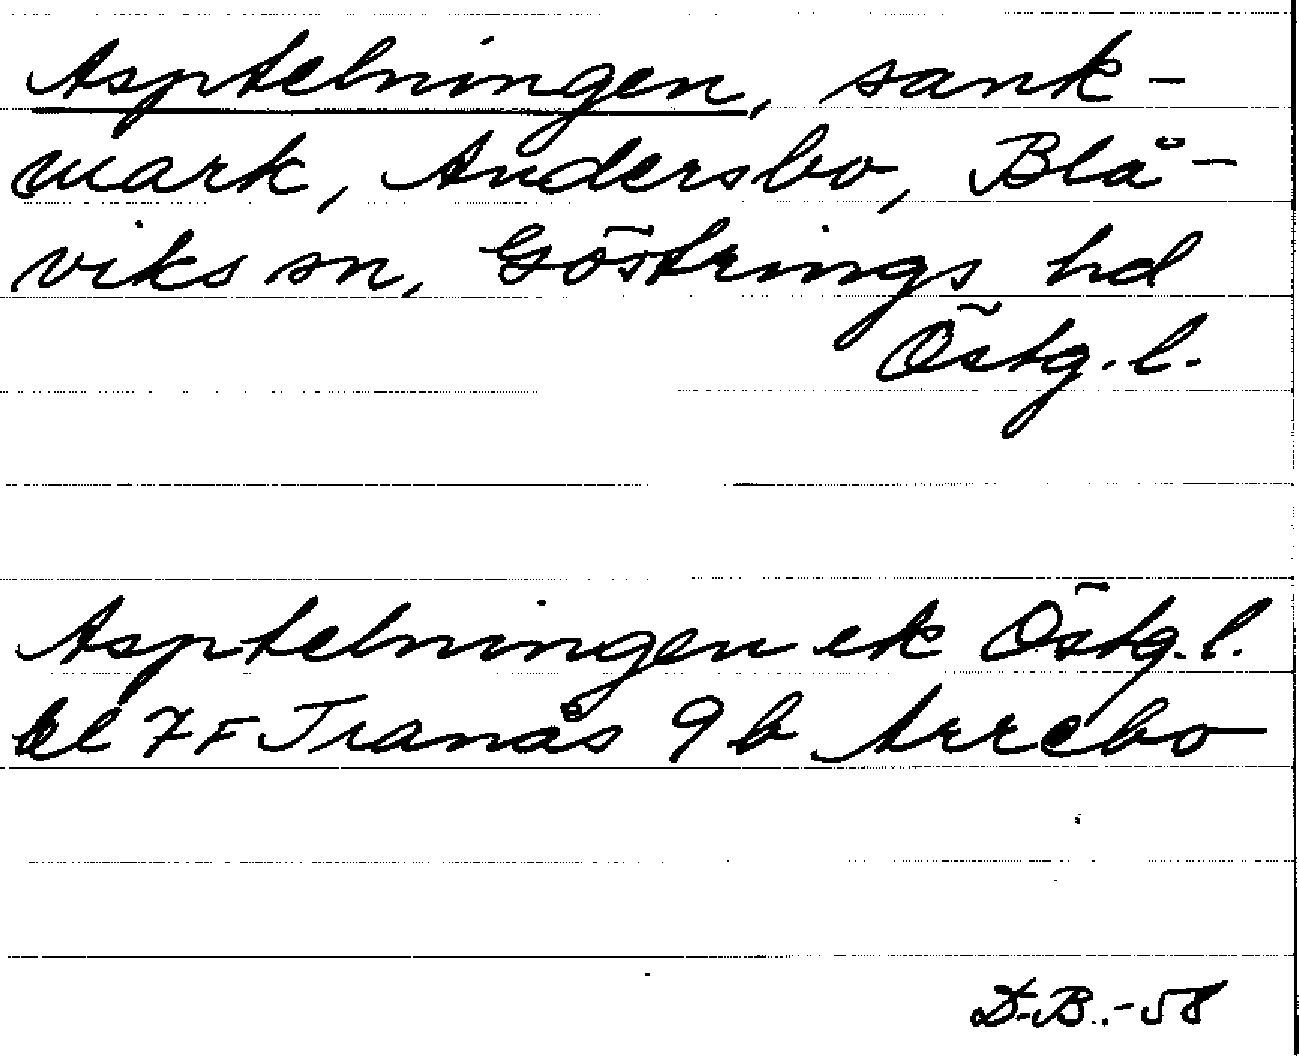 Asptelningen, sank-
mark, Andersbo, Blå-
viks sn, Göstrings hd
Östg. l.
Asptelningen ek Östg. l.
bl 7 F Tranås 9 b Arrebo
D.B. -58